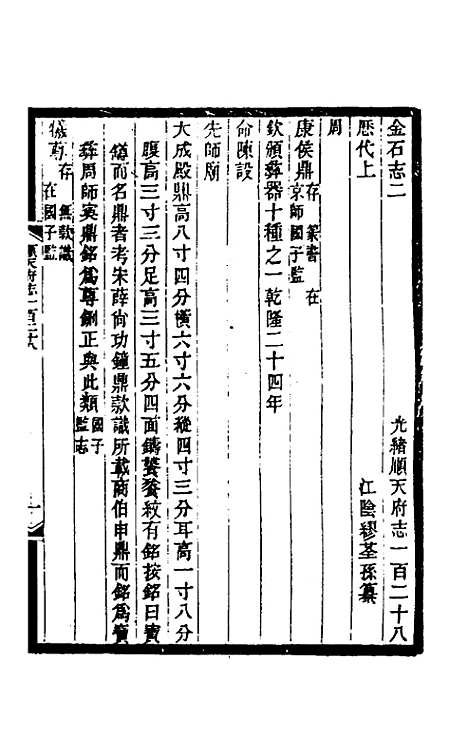 金石志二　光緒順天府志一百二十八
歷代上　江陰繆荃孫纂
周
康侯鼎存篆書在京師國子監
欽頒彝器十種之一乾隆二十四年
命陳設
先師廟
大成殿鼎高八寸四分橫六寸六分縱四寸三分耳高一寸八分
腹高三寸三分足高三寸五分四面鑄饕餮紋有銘按銘曰寶
鐈而名鼎者考宋薛尚功鐘鼎款識所載商伯申鼎而銘爲寶
彝周師寏鼎銘爲尊劍正與此類國子監志
犧尊存無款識在國子監
順天府志一百二十八